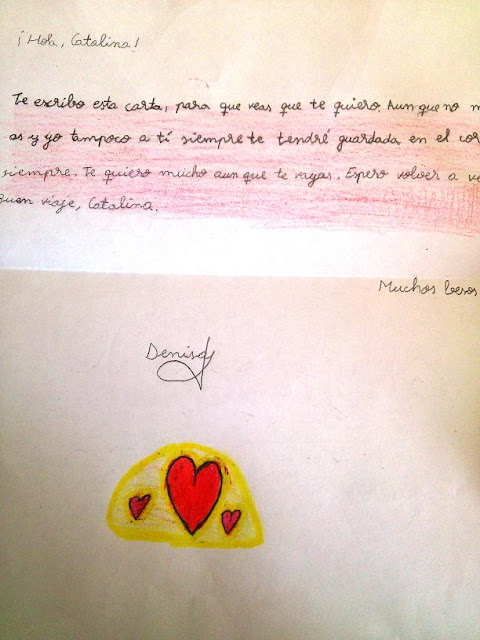 ¡Hola, Catalina!
Te escribo esta carta, para que veas que te quiero. Aunque no
as y yo tampoco a tí siempre te tendré guardada en el cor
siempre. Te quiero mucho aun que te vayas. Espero volver a ve
buen viaje, Catalina.
Muchos besos
Denisa